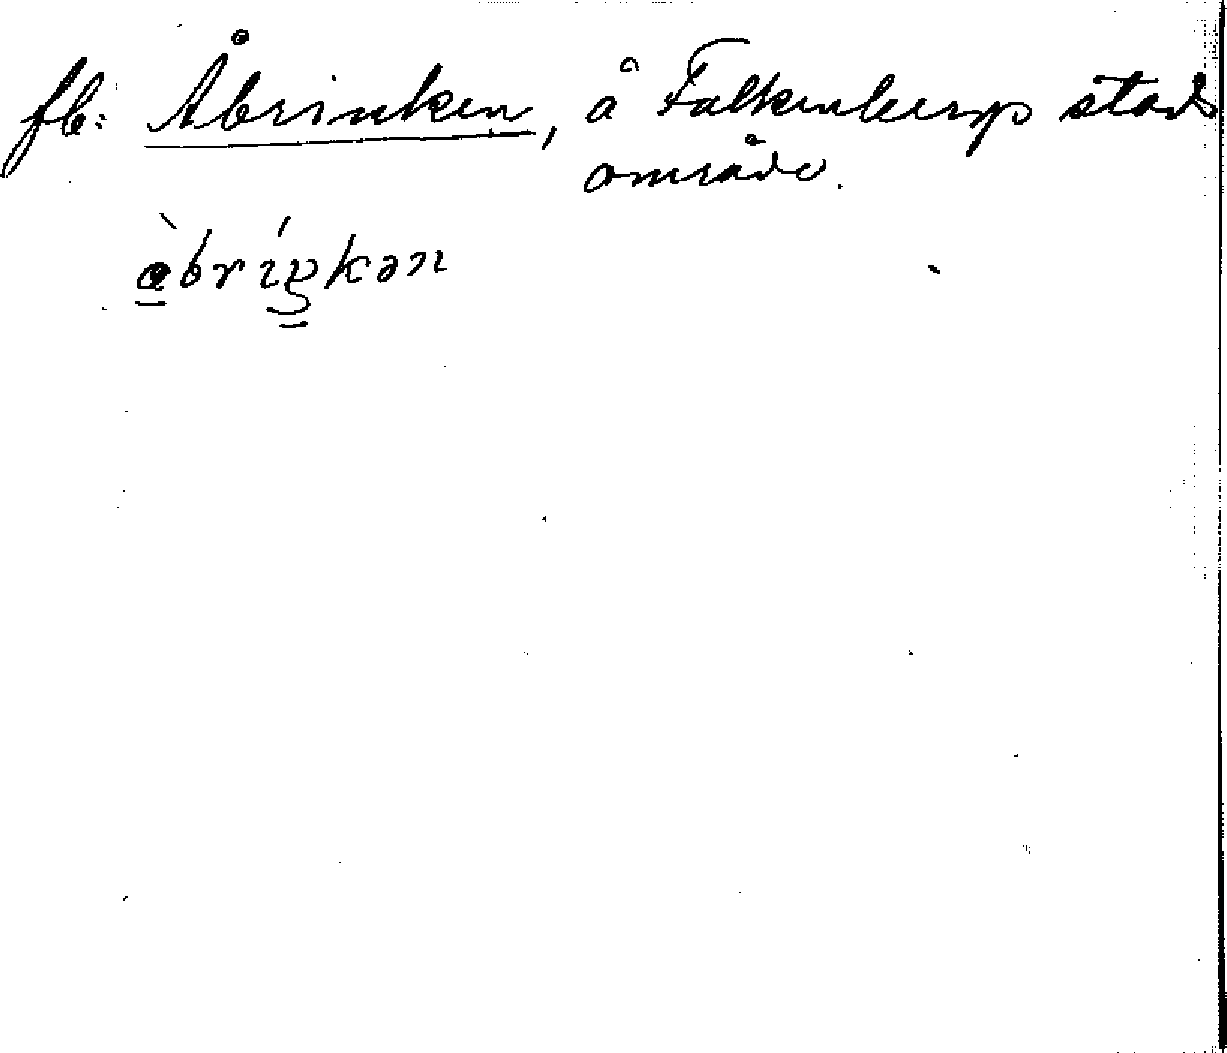 fb: Åbrinken, å Falkenbergs stads
område.
àbríŋkən